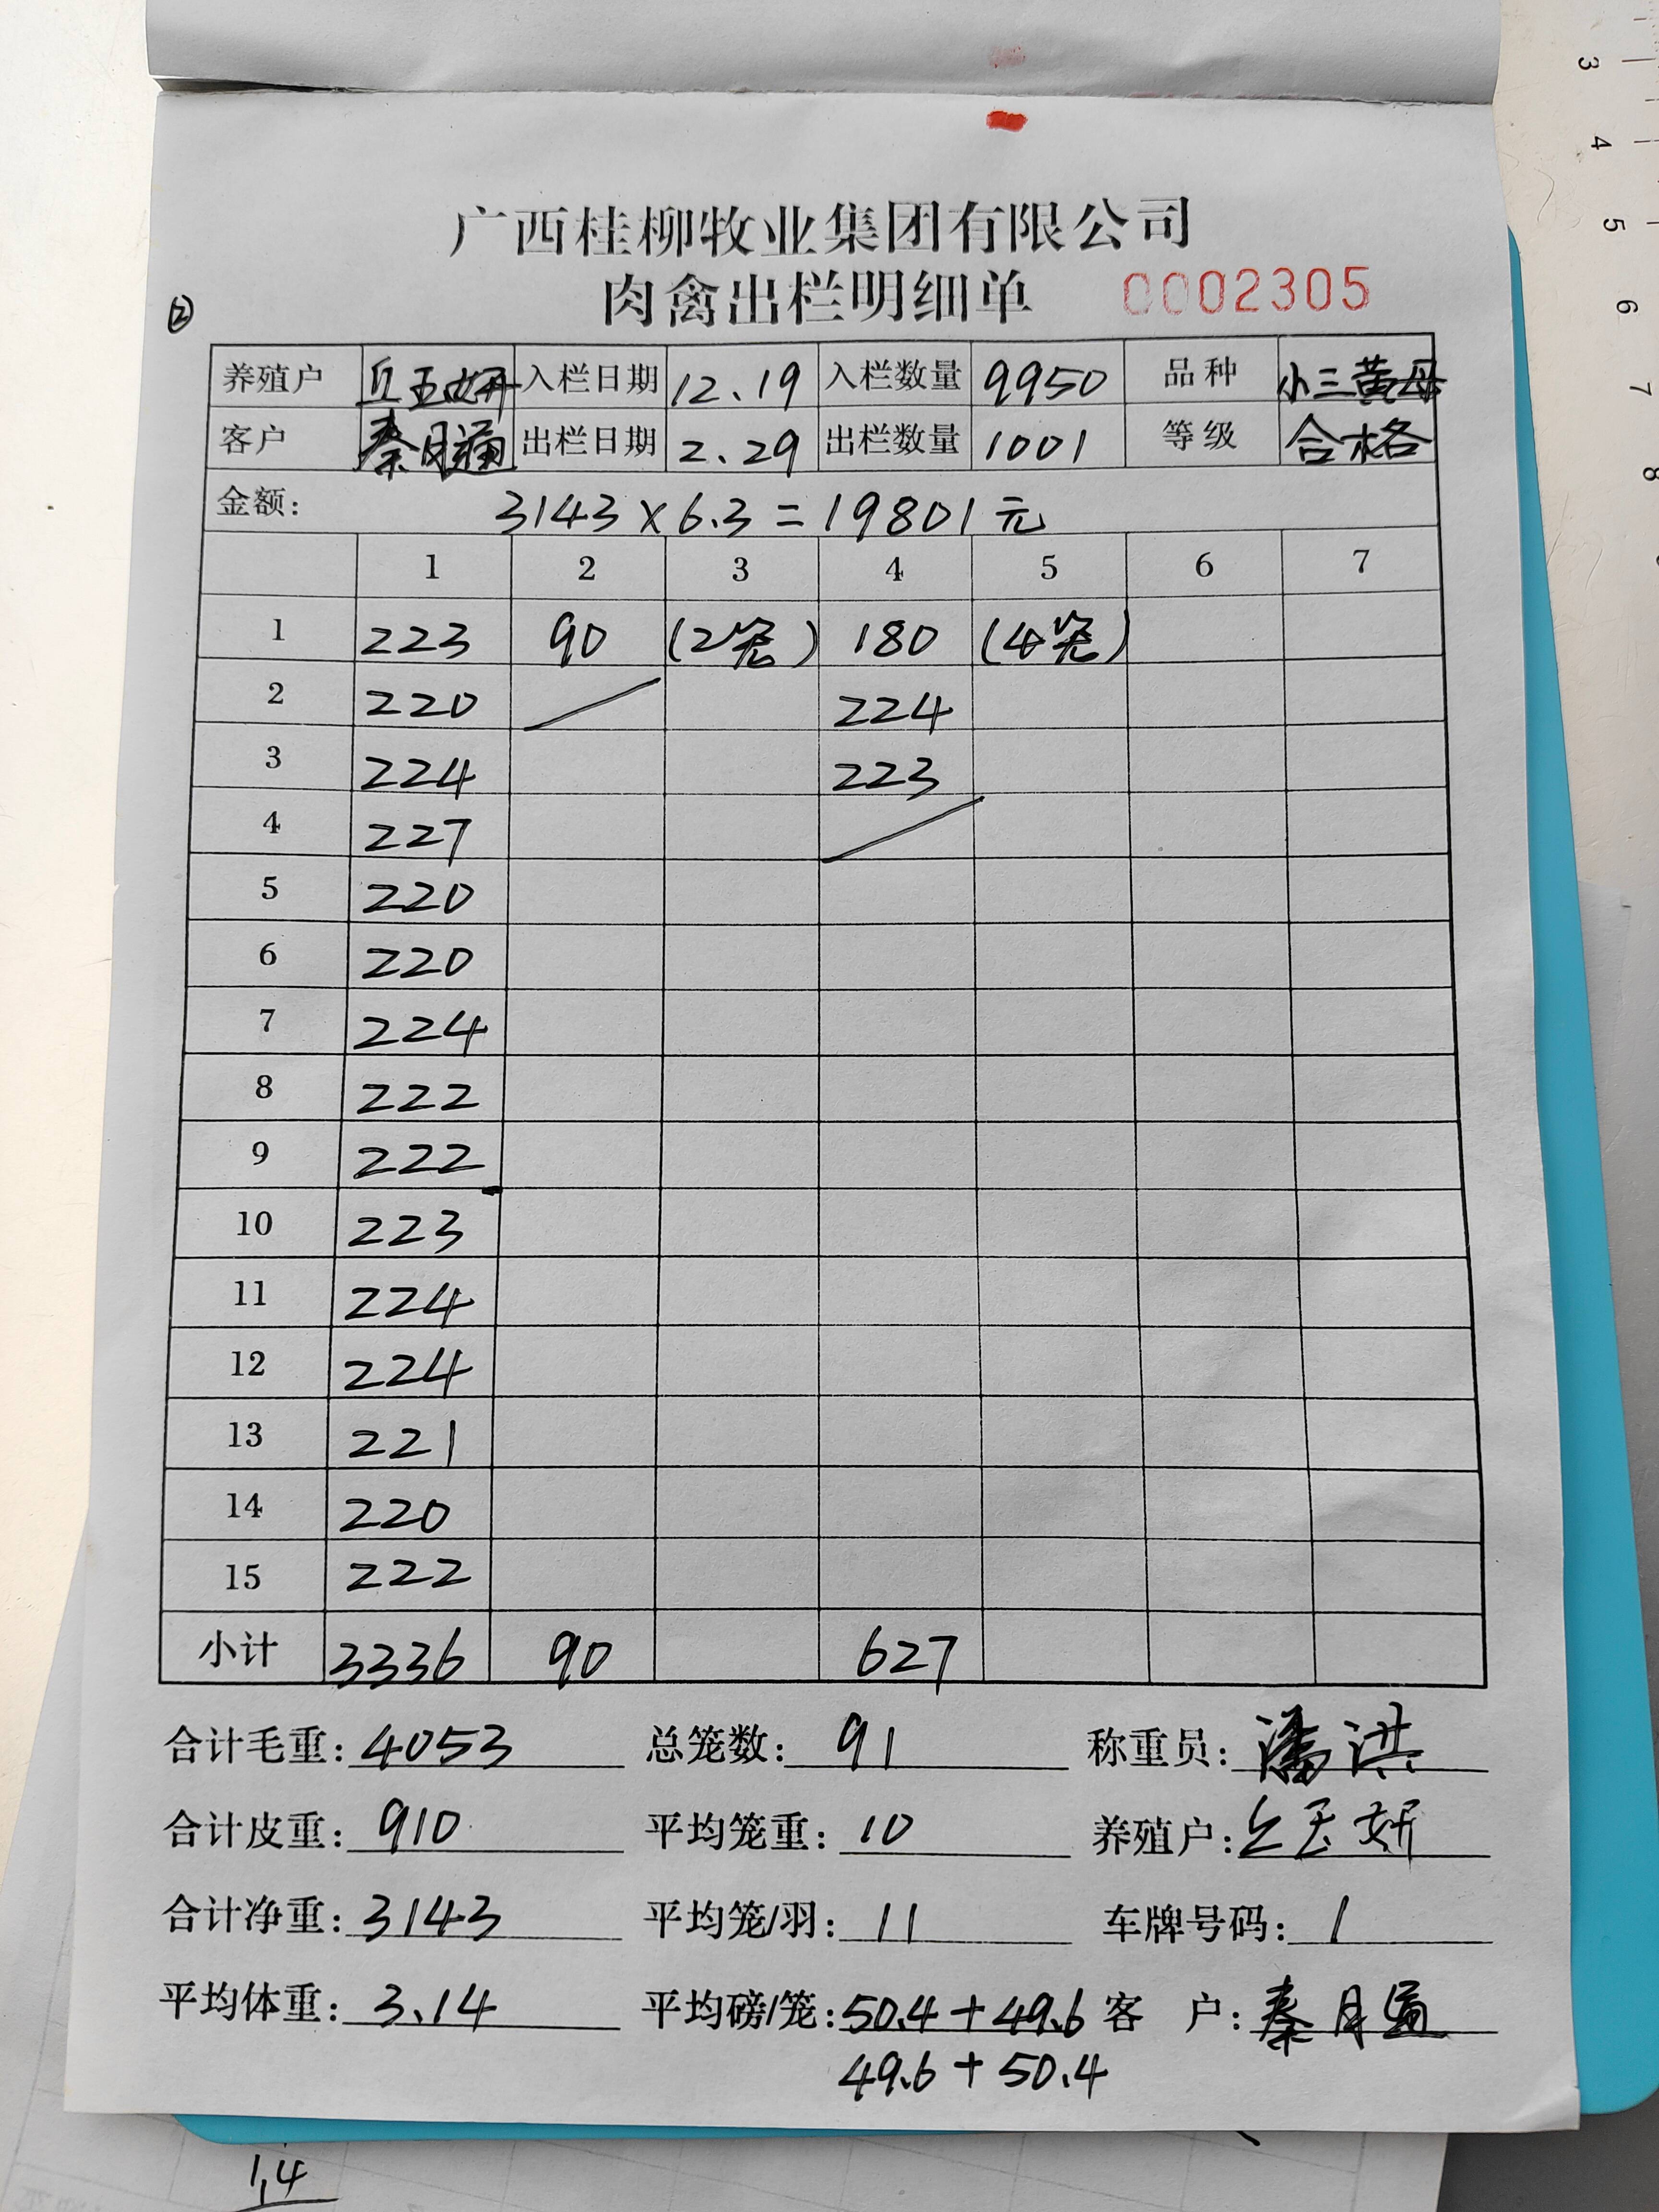 广西桂柳牧业集团有限公司
肉禽出栏明细单 0002305
②
养殖户 丘玉妍 入栏日期 12.19 入栏数量 9950 品种 小三黄母
客户 秦月通 出栏日期 2.29 出栏数量 1001 等级 合格
金额: 3143×6.3=19801元
1 2 3 4 5 6 7
1 223 90 (2笼) 180 (4笼)
2 220 224
3 224 223
4 227
5 220
6 220
7 224
8 222
9 222
10 223
11 224
12 224
13 221
14 220
15 222
小计 3336 90 627
合计毛重: 4053 总笼数: 91 称重员: 潘洪
合计皮重: 910 平均笼重: 10 养殖户: 丘玉妍
合计净重: 3143 平均笼/羽: 11 车牌号码: 1
平均体重: 3.14 平均磅/笼: 50.4+49.6 客 户: 秦月通
49.6+50.4
1.4
3
4
5
6
7
8